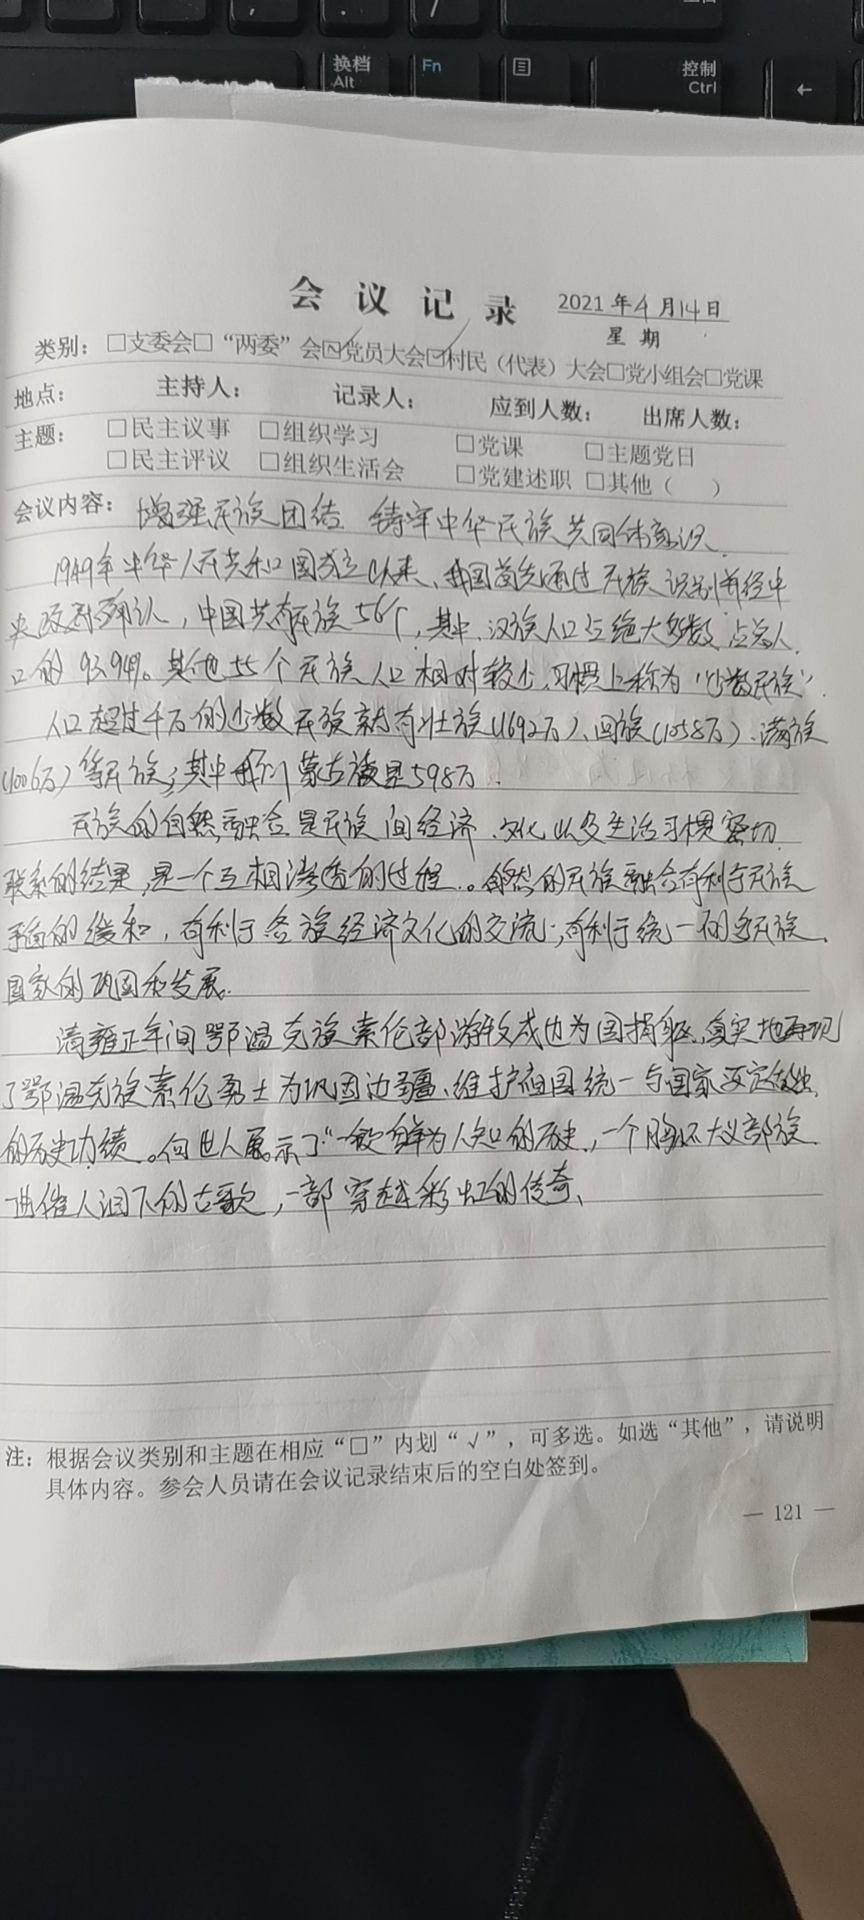 换档
Alt
Fn
控制
Ctrl
←
会议记录
2021年4月14日
星期
类别：□支委会□“两委”会☑党员大会☑村民（代表）大会□党小组会□党课
地点： 主持人： 记录人： 应到人数： 出席人数：
主题： □民主议事 □组织学习 □党课 □主题党日
□民主评议 □组织生活会 □党建述职 □其他（ ）
会议内容： 增强民族团结、铸牢中华民族共同体意识
1949年中华人民共和国成立以来，我国首先通过民族识别并经中
央政府确认，中国共有民族56个，其中，汉族人口占绝大多数，占总人
口的93.94%。其他55个民族人口相对较少，习惯上称为“少数民族”.
人口超过千万的少数民族就有壮族(1692万)、回族(1058万)、满族
(1006万)等民族；其中我们蒙古族是598万.
民族的自然融合是民族间经济、文化以及生活习惯密切
联系的结果，是一个互相渗透的过程。自然的民族融合有利于民族
矛盾的缓和，有利于各族经济文化的交流；有利于统一的多民族
国家的巩固和发展.
清雍正年间鄂温克族索伦部游牧戍边为国捐躯，真实地再现
了鄂温克族索伦勇士为巩固边疆、维护祖国统一与国家安定
的历史功绩。向世人展示了“一段鲜为人知的历史，一个胸怀大义部族
一曲催人泪下的古歌，一部穿越彩虹的传奇、
注：根据会议类别和主题在相应“□”内划“√”，可多选。如选“其他”，请说明
具体内容。参会人员请在会议记录结束后的空白处签到。
— 121 —